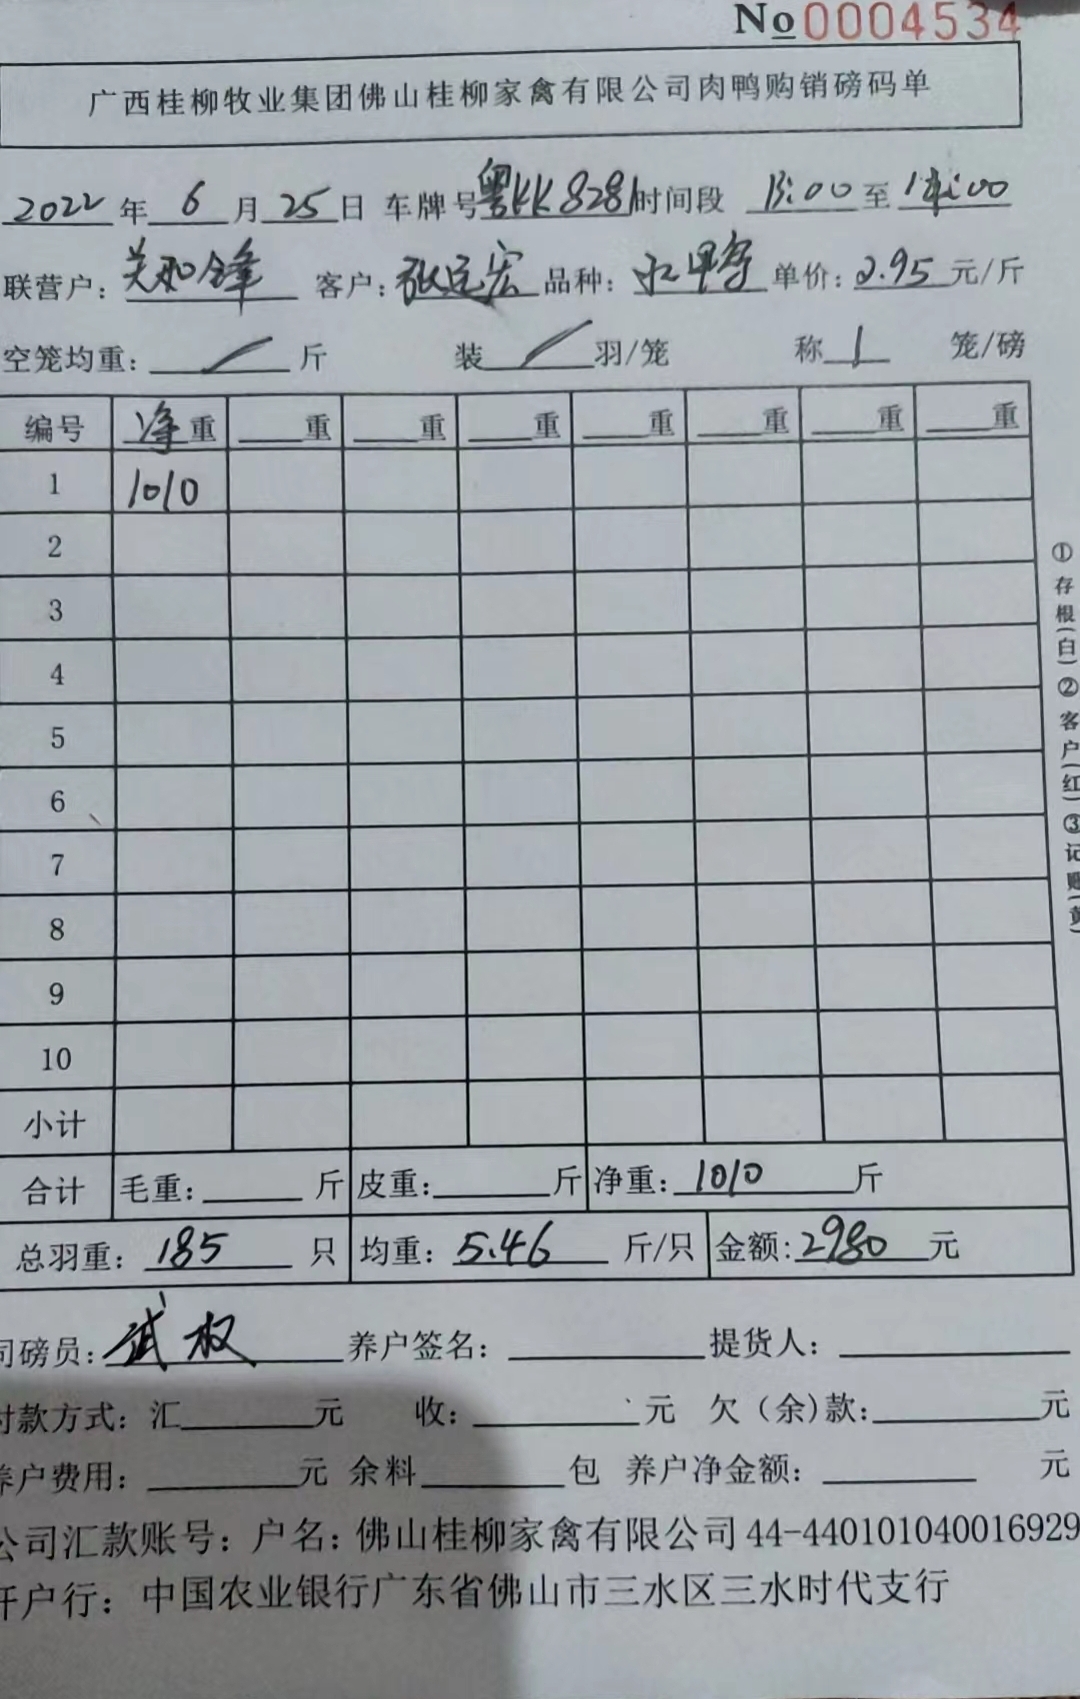 No 0004534
广西桂柳牧业集团佛山桂柳家禽有限公司肉鸭购销磅码单
2022 年 6 月 25 日 车牌号 粤KK8281 时间段 13:00 至 14:00
联营户: 关和锋 客户: 张运宏 品种: 水鸭 单价: 2.95 元/斤
空笼均重: / 斤 装 / 羽/笼 称 1 笼/磅
编号 净重 重 重 重 重 重 重 重
1 1010
2
3
4
5
6
7
8
9
10
小计
合计 毛重: 斤 皮重: 斤 净重: 1010 斤
总羽重: 185 只 均重: 5.46 斤/只 金额: 2980 元
司磅员: 武权 养户签名: 提货人:
付款方式: 汇 元 收: 元 欠(余)款: 元
养户费用: 元 余料 包 养户净金额: 元
公司汇款账号: 户名: 佛山桂柳家禽有限公司 44-440101040016929
开户行: 中国农业银行广东省佛山市三水区三水时代支行
①存根(白)②客户(红)③记账(黄)